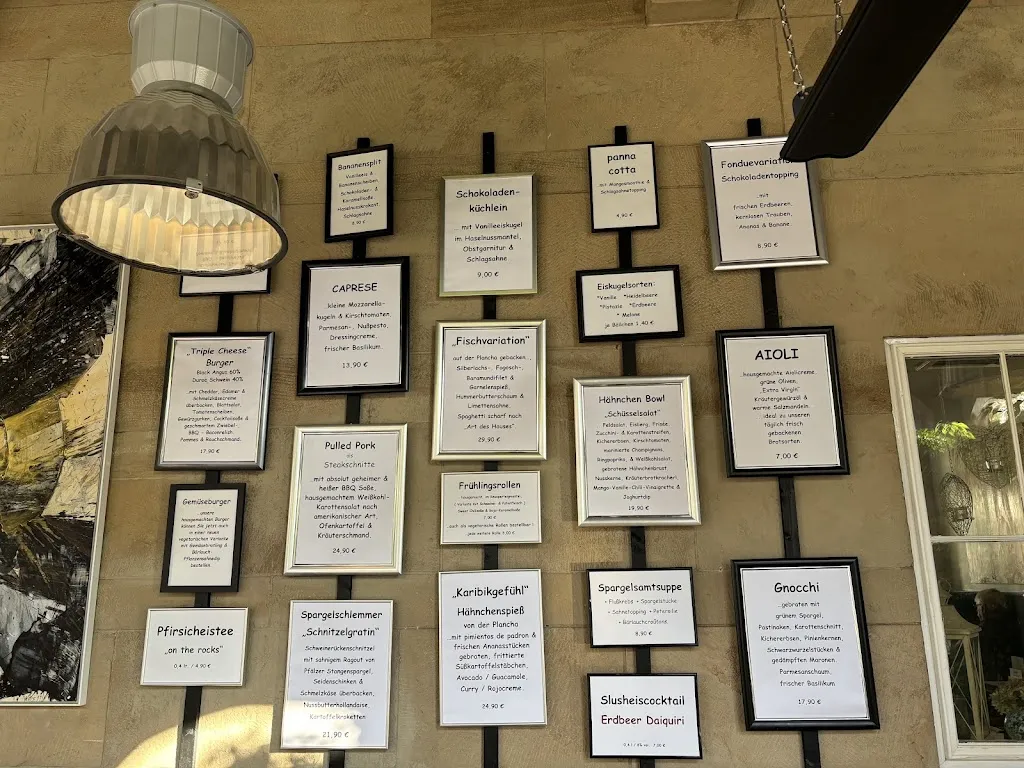 Bananensplit
Vanilleeis &
Bananenscheiben,
Schokoladen- &
Karamellsoße
Haselnusskrokant,
Schlagsahne
8,90 €
CAPRESE
kleine Mozzarella-
kugeln & Kirschtomaten,
Parmesan-, Nußpesto,
Dressingcreme,
frischer Basilikum.
13,90 €
„Triple Cheese"
Burger
Black Angus 60%
Duroc Schwein 40%
...mit Cheddar, Edamer &
Schmelzkäsecreme
überbacken, Blattsalat,
Tomatenscheiben,
Gewürzgurken, Cocktailsoße &
geschmorten Zwiebel-
BBQ - Baconrelish.
Pommes & Rauchschmand.
17,90 €
Gemüseburger
...unsere
hausgemachten Burger
können Sie jetzt auch
in einer neuen
vegetarischen Variante
mit Gemüsebratling &
Bärlauch
bestellen.
Pfirsicheistee
„on the rocks"
0,4 ltr. / 4,90 €
Pulled Pork
als
Steakschnitte
...mit absolut geheimer &
heißer BBQ Soße,
hausgemachtem Weißkohl-
Karottensalat nach
amerikanischer Art,
Ofenkartoffel &
Kräuterschmand.
24,90 €
Spargelschlemmer
„Schnitzelgratin"
Schweinerückenschnitzel
mit sahnigem Ragout von
Pfälzer Stangenspargel,
Seidenschinken &
Schmelzkäse überbacken,
Nussbutterhollandaise,
Kartoffelkroketten
21,90 €
Schokoladen-
küchlein
...mit Vanilleeiskugel
im Haselnussmantel,
Obstgarnitur &
Schlagsahne
9,00 €
„Fischvariation"
auf der Plancha gebacken...
Silberlachs-, Fogosch-,
Baramundifilet &
Garnelenspieß,
Hummerbutterschaum &
Limettensahne,
Spaghetti scharf nach
„Art des Hauses"
29,90 €
Frühlingsrollen
Sweet Chilisoße & Soja-Karamellsoße
7,00 €
...auch als vegetarische Rollen bestellbar!
jede weitere Rolle 3,00 €
„Karibikgefühl"
Hähnchenspieß
von der Plancha
...mit pimientos de padron &
frischen Ananasstücken
gebraten, frittierte
Süßkartoffelstäbchen,
Avocado / Guacamole,
Curry / Rojocreme.
24,90 €
panna
cotta
mit Mangosmoothie &
Schlagsahnetopping
4,90 €
Eiskugelsorten:
*Vanille *Heidelbeere
*Pistazie *Erdbeere
* Melone
je Bällchen 1,40 €
Hähnchen Bowl
„Schüsselsalat"
Feldsalat, Eisberg, Frisée,
Zucchini- & Karottenstreifen,
Kichererbsen, Kirschtomaten,
marinierte Champignons,
Ringpaprika, & Weißkohlsalat,
gebratene Hähnchenbrust
Nusskerne, Kräuterbrotkracher!
Mango-Vanille-Chili-Vinaigrette &
Joghurtdip
19,90 €
Spargelsamtsuppe
+ Flußkrebs + Spargelstücke
+ Sahnetopping + Petersilie
+ Bärlauchcroûtons
8,90 €
Slusheiscocktail
Erdbeer Daiquiri
Fonduevariation
Schokoladentopping
...mit
frischen Erdbeeren,
kernlosen Trauben,
Ananas & Banane.
8,90 €
AIOLI
...hausgemachte Aiolicreme,
grüne Oliven,
„Extra Virgin"
Kräutergewürzöl &
warme Salzmandeln.
...ideal zu unseren
täglich frisch
gebackenen
Brotsorten.
7,00 €
Gnocchi
...gebraten mit
grünem Spargel,
Pastinaken, Karottenschnitt,
Kichererbsen, Pinienkernen,
Schwarzwurzelstücken &
gedämpften Maronen.
Parmesanschaum,
frischer Basilikum
17,90 €